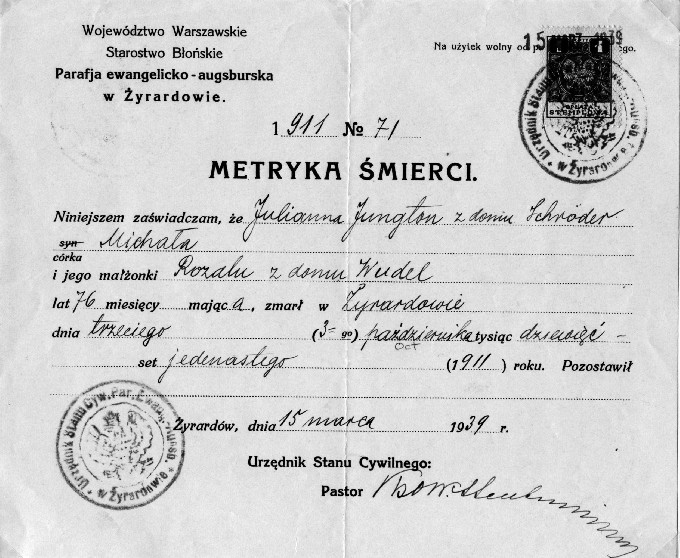 Województwo Warszawskie
Starostwo Błońskie
Parafja ewangelicko-augsburska
w Żyrardowie.
Na użytek wolny od
15 1939
STEMPLOWA
Urzędnik Stanu
w Żyrardowie
1911 № 71
METRYKA ŚMIERCI.
Niniejszem zaświadczam, że Julianna Jungton z domu Schröder
syn Michała
córka
i jego małżonki Rozalii z domu Weidel
lat 76 miesięcy mająca, zmarł w Żyrardowie
dnia trzeciego (3-go) października tysiąc dziewięć-
Oct
set jedenastego (1911) roku. Pozostawił
Żyrardów, dnia 15 marca 1939 r.
Urzędnik Stanu Cywilnego:
Pastor
Urzędnik Stanu Cyw. Par. Ewang.
w Żyrardowie